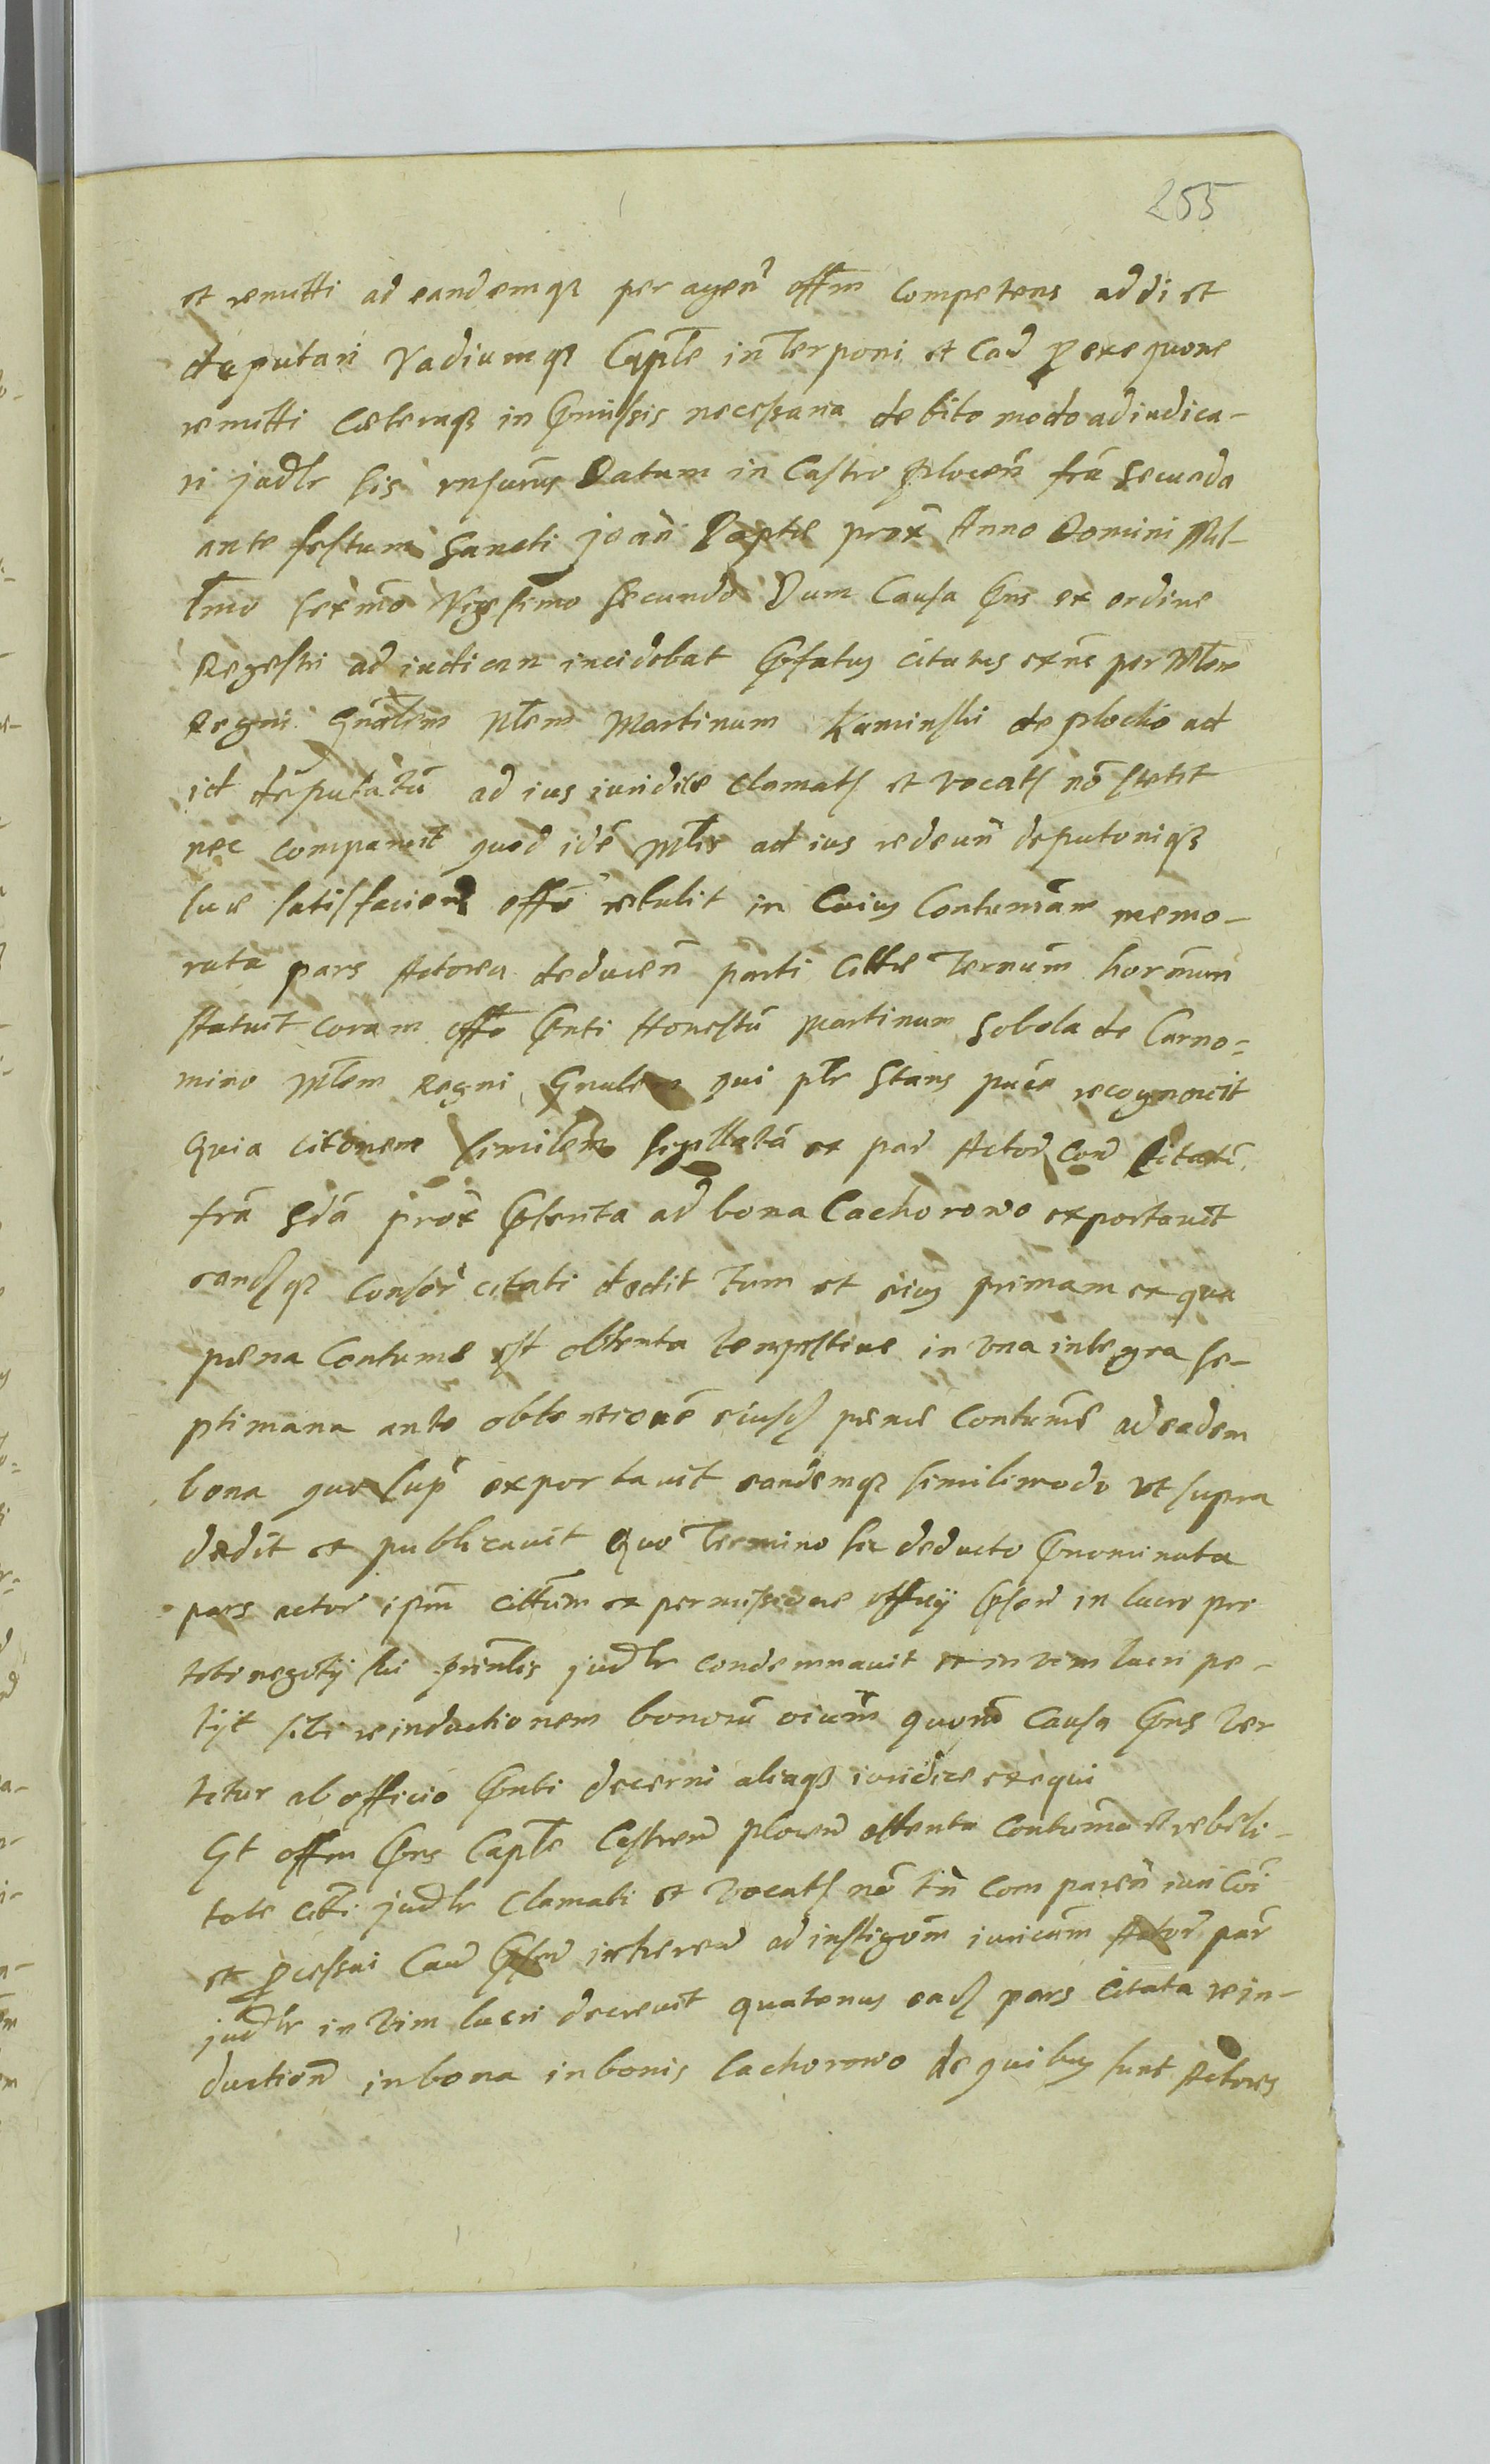 255
et remitti ad eandemq per agen offm competens addi et
deputari Vadiumq Capłe interponi et Cad p exequone
remitti Cæteraq in Pmissis necessaria debito modo adiudica-
ri judlr sis visurus Datum in Castro Plocen fra Secunda
ante festum Sancti Joan Baptæ prox Anno Domini Mil-
lmo sexmo Vigesimo Secundo Dum Causa Pns ex ordine
Regestri ad iudican incidebat Pfatus citatus exns per Mlem
Regni Gnalem Nlem Martinum Kaminski de plocko ad
id deputatu ad ius iuridice clamats et vocats no stetit
nec comparuit quod ide Mlis ad ius redeun deputoniq
suæ satisfacien offo retulit in Cuius Contumam memo-
rata pars Actorea deducen parti Cittæ Ternum horarum
statuit coram offo Pnti Honestu Martinum Sobola de Carno=
mino Mlem Regni Gnalem qui plr Stans pace recognovit
Quia citonem similem sigillata ex par Actor Con Citatu
fra Sda prox Pterita ad bona Cachorowo exportavit
eandq Consor citati dedit Tum et eius primam ex qua
pæna Contumæ est obtenta tempestive in una integra se-
ptimana ante obtentione eiusd penæ Contumæ ad eadem
bona quo sup exportavit eandemq simili modo ut supra
dedit et publicavit Quo Termino sic deducto Pnominata
pars actor ipm cittum ex permissione officij Psen in lucro pro
toti negotij sui prinlis judlr condemnavit et in vim lucri pe-
tijt sibi reinductionem bonoru oium quoru Causa Pns ver
titur ab officio Pnti decerni aliaq iuridice exequi
Et offm Pns Caple Castren plocen attenta Contuma et rebeli-
tate citti judlr Clamati et vocats no tn comparen iuri coi
et pcessui Cau Psen inheren ad instigom iuricam Actor par
judlr in vim lucri decrevit quatenus ead pars Citata rein-
duction in bona in bonis Cachorowo de quibus sunt Actores